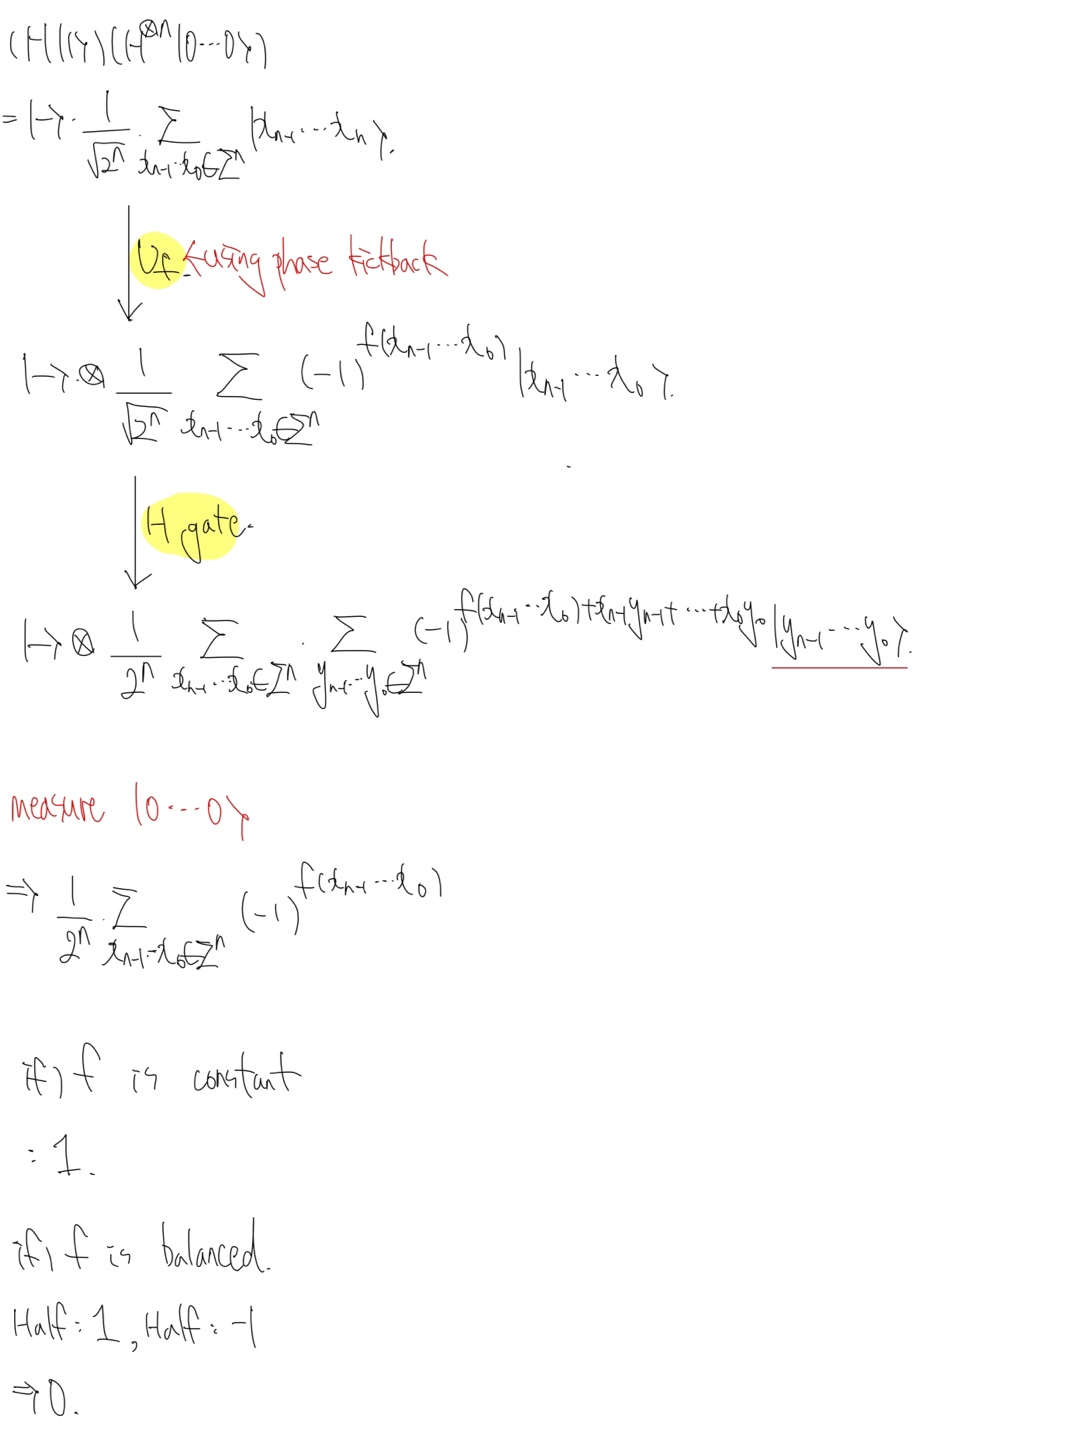 (H|1⟩)(H^{⊗n}|0⋯0⟩)
= |−⟩ · 1/√2^n · Σ_{x_{n-1}⋯x_0∈Σ^n} |x_{n-1}⋯x_n⟩.
U_f ← using phase kickback
|−⟩ ⊗ 1/√2^n Σ_{x_{n-1}⋯x_0∈Σ^n} (−1)^{f(x_{n-1}⋯x_0)} |x_{n-1}⋯x_0⟩.
H gate.
|−⟩ ⊗ 1/2^n Σ_{x_{n-1}⋯x_0∈Σ^n} · Σ_{y_{n-1}⋯y_0∈Σ^n} (−1)^{f(x_{n-1}⋯x_0)+x_{n-1}y_{n-1}+⋯+x_0y_0} |y_{n-1}⋯y_0⟩.
measure |0⋯0⟩
⇒ 1/2^n · Σ_{x_{n-1}⋯x_0∈Σ^n} (−1)^{f(x_{n-1}⋯x_0)}
if) f is constant
: 1.
if) f is balanced.
Half : 1, Half : −1
⇒ 0.